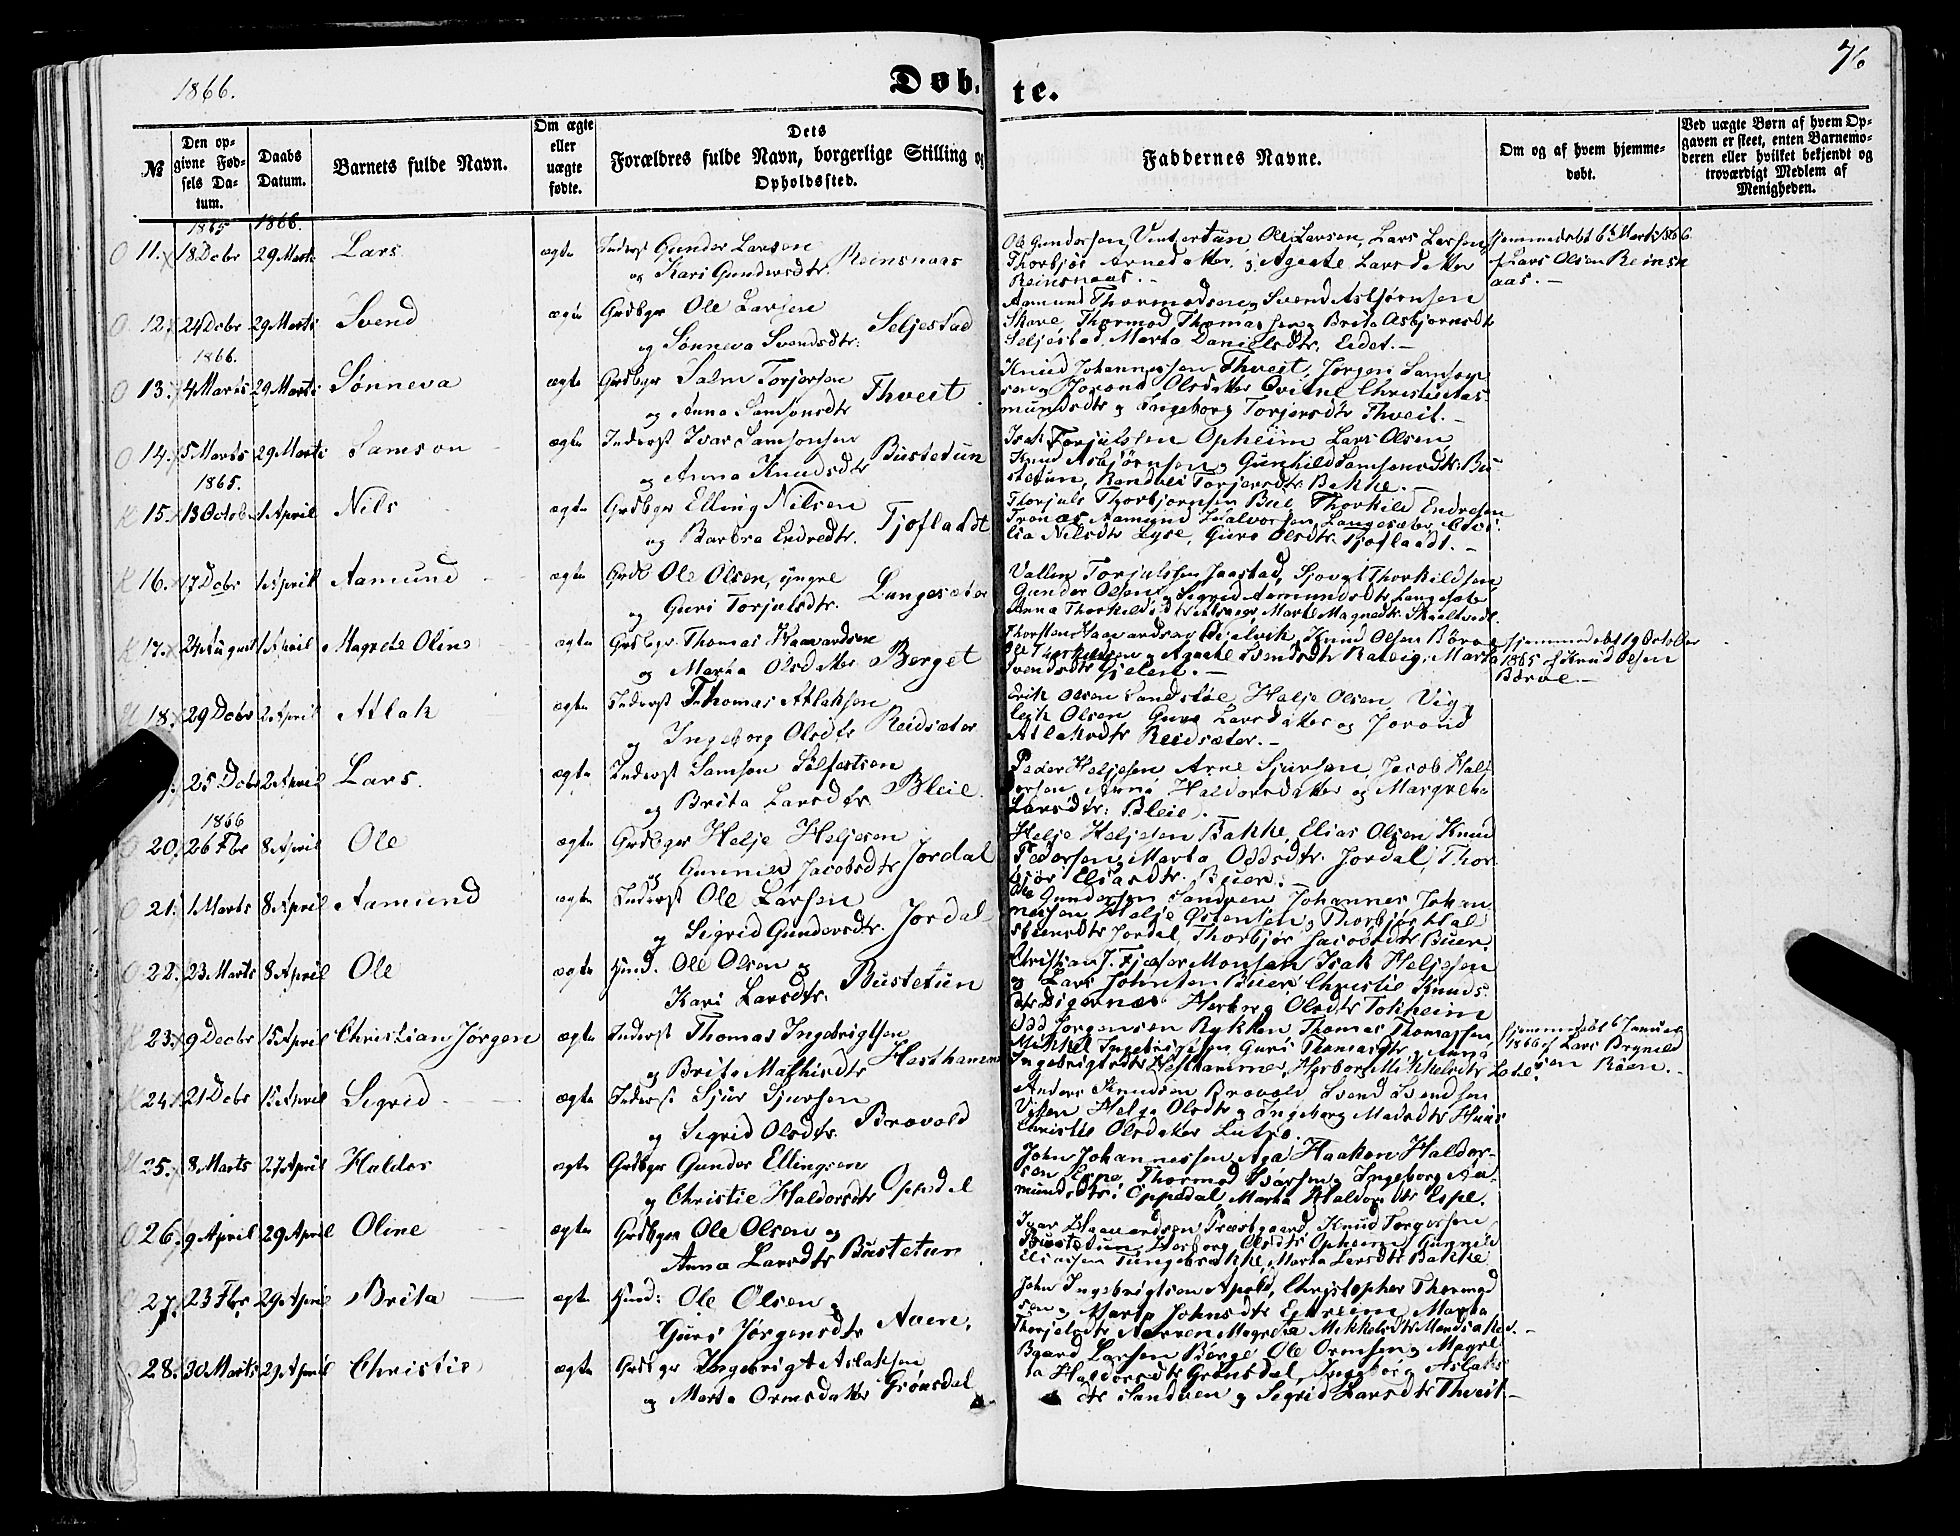 1866.
Døb-
te.
76
№
Den op-
givne Fød-
sels Da-
tum.
Daabs
Datum.
Barnets fulde Navn.
Om ægte
eller
uægte
fødte.
Dets
Forældres fulde Navn, borgerlige Stilling og
Opholdssted.
Faddernes Navne.
Om og af hvem hjemme-
døbt.
Ved uægte Børn af hvem Op-
gaven er skeet, enten Barnemo-
deren eller hvilket bekjendt og
troværdigt Medlem af
Menigheden.
1865 1866.
O 11. 18 Dcbr 29 Marts Lars ægte Inderst Gunder Larsen
og Kari Gundersdtr. Reinsnaas
Ole Gundersen, Vintertun Ole Larsen, Lars Larsen
Thorbjør Arnedatter, og Agaate Larsdatter
Reinsnaas.
hjemmedøbt 6 Marts 1866
af Lars Olsen Reinsn
aas.
O 12. 24 Dcbr 29 Marts Svend ægte Grdbgr Ole Larsen
og Sønneva Svendsdtr. Seljestad
Aamund Thormodsen, Svend Asbjørnsen
Skare, Thormod Thomassen, Brita Asbjørnsdtr
Seljestad, Marta Danielsdtr. Eidet.
1866.
O 13. 4 Marts 29 Marts Sønneva ægte Grdbgr Salm Torjersen
og Anna Samsonsdtr Thveit
Knud Johannessen Thveit, Jørgen Samson
sen, Jorond Olsdatter Qvitne Christie Aas
mundsdtr og Ingeborg Torjersdtr Thveit.
O 14. 5 Marts 29 Marts Samson ægte Inderst Ivar Samsonsen
og Anna Knudsdtr Bustetun
Isak Torjulsen Opheim Lars Olsen
Knud Asbjørnsen og Gunhild Samsonsdtr. Bu-
stetun, Randvei Torjersdtr Bakke.
1865.
15. 13 Octobr 1 April Nils ægte Grdbgr Elling Nilsen
og Barbra Endredtr. Tjofladt
Thorjuls Thorbjørnsen Bul, Thorkild Endresen
Tronæs Aamund Halvorsen, Langesæter,
lia Nilsdtr Lyse, Guro Olsdtr Tjoflaadt.
16. 17 Dcbr 1 April Aamund ægte Grdb Ole Olsen, yngre
og Guri Torjulsdtr. Langesæter
Vallen Torjulssen Jaastad, Sjovat Thorkildsen
Gunder Olsen, Sigrid Aamundsdtr Langesæte
Anna Thorkildsdtr Alsager, Marte Magnedtr. Skieltved.
17. 24 August 1 April Magrete Oline ægte Grdbgr. Thomas Haavardsen
og Marta Olsdatter Berget
Thorsten Haavardsen Djelvik, Knud Olsen Børve
Agaate Svendsdtr Marta
Svendsdtr Hjelen.
hjemmedøbt 19 October
1865 af Knud Olsen
Børve.
18. 29 Dcbr 2 April Atlak ægte Inderst Thomas Atlaksen
og Ingeborg Olsdtr Reidsæter
Erik Olsen Sandstøl, Helje Olsen, Vig-
leik Olsen Guro Larsdatter og Jorond
Atlaksdtr Reidsæter.
25 Dcbr 2 April Lars. ægte Inderst Samson Solfestsen
og Brita Larsdtr Bleie.
Peder Heljesen Arne Sjursen, Jacob Hal-
dorsen Anna Haldorsdatter og Margrete
Larsdtr. Bleie.
1866
20. 26 Fbr 8 April Ole ægte Grdbgr Helje Heljesen
og Gunnild Jacobsdtr Jordal
Helje Heljesen Bakke, Elias Olsen Knud
Pedersen, Marta Oddsdtr. Jordal, Thor-
bjør Eliasdtr. Buer.
O 21. 1 Marts 8 April Aamund ægte Inderst Ole Larsen
og Sigrid Gundersdtr. Jordal
Ole Gundersen Sandven Johannes Johan-
nessen Helje Østensen, Thorbjør Hal
steinsdtr Jordal, Thorbjør Jacobsdtr Buer.
O 22. 23 Marts 8 April Ole ægte Husmd. Ole Olsen og
Kari Larsdtr. Bustetun
Christian J. Fjæser Monsen Isak Heljesen
og Lars Johnsen Buer, Christie Knuds.
dtr Digernæs Herborg Olsdtr Tokheim
23. 9 Decbr 15 April Christian Jørgen ægte Inderst Thomas Ingebrigtsen
og Brita Mathisdtr Hesthammer
Odd Jørgensen Rykken Thomas Thomassen
Mikkel Ingebrigtsen Guri Thomasdtr, Anna
Ingebrigtsdtr Hesthammer, Herborg Mikkelsdtr Lote.
hjemmedøbt 6 Januar
1866 af Lars Brynild
sen Raaen.
24. 21 Dcbr 15 April Sigrid ægte Inderst Sjur Sjursen
og Sigrid Olsdtr. Bravold
Anders Knudsen Bravold, Svend Svendsen
Helga Olsdtr og Ingeborg Madsdtr Huus
Christie Olsdatter Lutro.
25. 8 Marts 27 April Haldor ægte Grdbgr Gunder Ellingsen
og Christie Haldorsdtr Oppedal
John Johannessen Aga Haaken Haldor-
sen Espe, Thormod Ivarsen, Ingeborg Aa-
mundsdtr Oppedal Marta Haldorsdtr Espe.
O 26. 9 April 29 April Oline ægte Grdbgr Ole Olsen og
Anna Larsdtr Bustetun
Ivar Haavardsen Præstgaard, Knud Torgersen
Bustetun, Herborg Olsdtr Opheim, Gunnild
Eliassen Marta Larsdtr Bakke
27. 23 Fbr 29 April Brita ægte Husmd: Ole Olsen og
Guri Jørgensdtr Aaen.
John Ingebrigtsen Apold, Christopher Thormod
sen, Marta Johnsdtr Eitreim, Marta
Thorjelsdtr Magretha Mikkelsdtr
28. 30 Marts 29 April Christie ægte Grdbgr Ingebrigt Aslaksen
og Marta Ormsdatter Grønsdal
Baard Larsen Børge Ole Ormsen, Magret-
ta Haldorsdtr Grønsdal, Ingeborg Aslaks
dtr Sandven og Sigrid Larsdtr Thveit